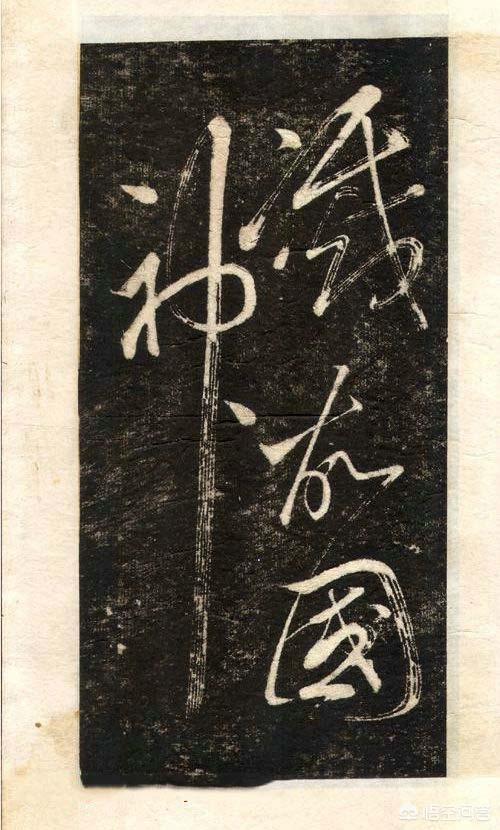 滅故國
神
悟空问答